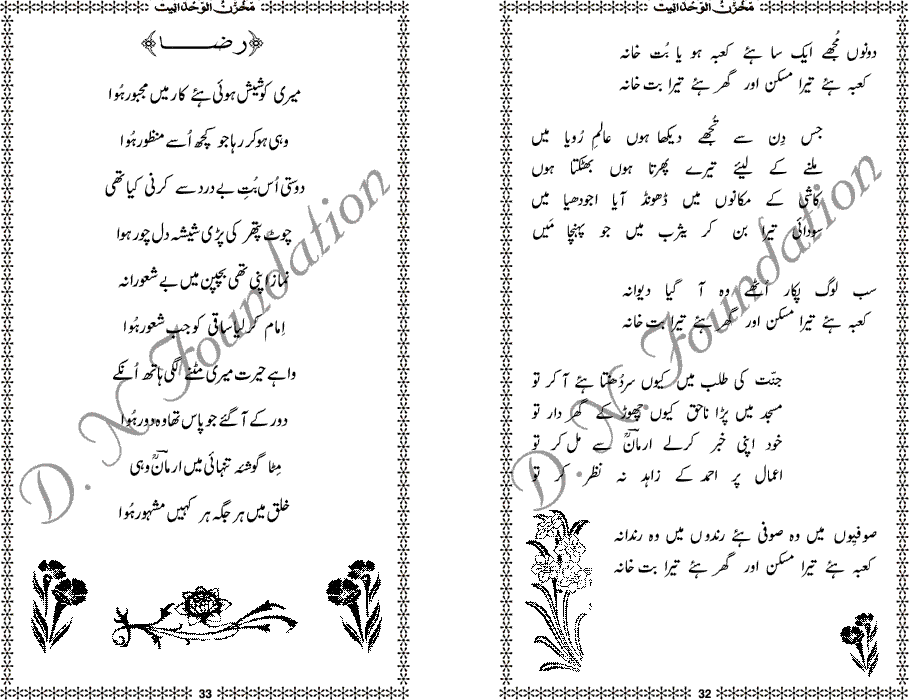 مَخْزَنُ الوَحْدَانِیت
دونوں مُجھے ایک سا ہئے کعبہ ہو یا بُت خانہ
کعبہ ہئے تیرا مسکن اور گھر ہئے تیرا بت خانہ
جس دِن سے تُجھے دیکھا ہوں عالمِ رُویا میں
مِلنے کے لیئے تیرے پھرتا ہوں بھٹکتا ہوں
کاشی کے مکانوں میں ڈھونڈ آیا اجودھیا میں
سودائی تیرا بن کر یثرب میں جو پہنچا مَیں
سب لوگ پکار اُٹھے وہ آ گیا دیوانہ
کعبہ ہئے تیرا مسکن اور گھر ہئے تیرا بت خانہ
جنّت کی طلب میں کیوں سردُھنتا ہئے آ کر تو
مسجد میں پڑا ناحق کیوں چھوڑ کے گھر دار تو
خود اپنی خبر کرلے ارمانؔ سے مل کر تو
اعمال پر احمد کے زاہد نہ نظر کر تو
صوفیوں میں وہ صوفی ہئے رندوں میں وہ رندانہ
کعبہ ہئے تیرا مسکن اور گھر ہئے تیرا بت خانہ
32
مَخْزَنُ الوَحْدَانِیت
رضا
میری کوشیش ہوئی ہئے کار میں مجبور ہُوا
وہی ہو کر رہا جو کچھ اُسے منظور ہُوا
دوستی اُس بُتِ بے درد سے کرنی کیا تھی
چوٹ پتھر کی پڑی شیشہ دل چور ہوا
نماز اپنی تھی بچپن میں بے شعورانہ
اِمام کرلیا ساقی کو جب شعور ہُوا
واہے حیرت میری مٹنے لگی ہاتھ اُنکے
دور کے آگئے جو پاس تھا وہ دور ہُوا
مِٹا گوشئہ تنہائی میں ارمانؔ وہی
خلق میں ہر جگہ ہر کہیں مشہور ہُوا
33
D. N. Foundation
D. N. Foundation